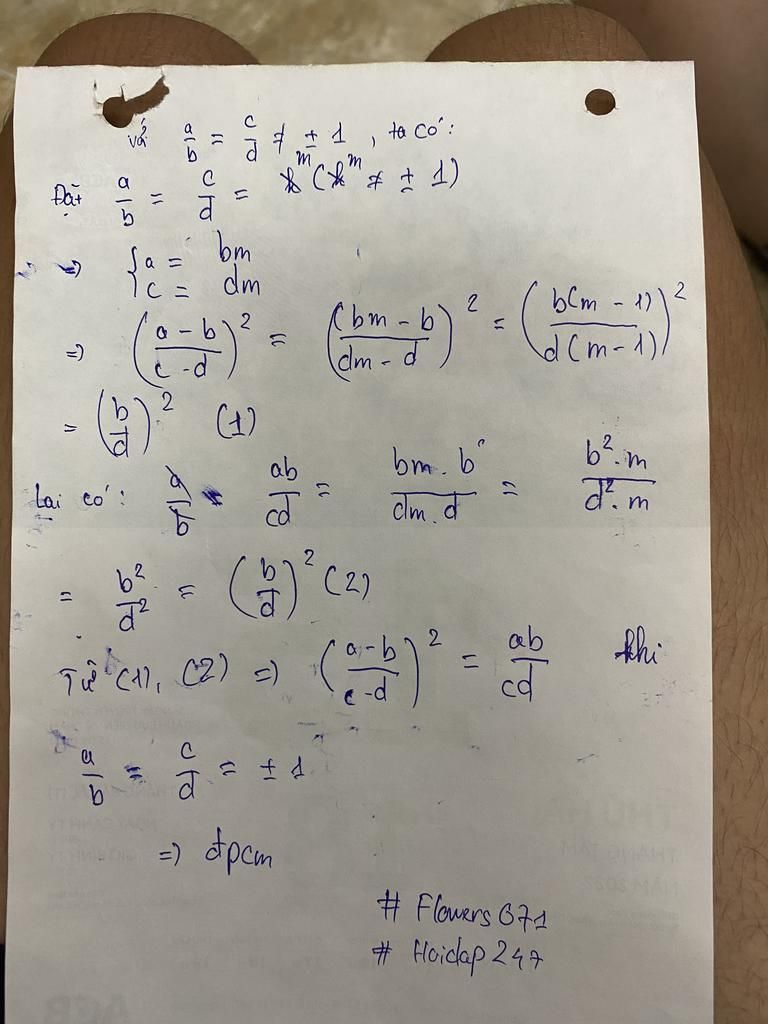 với a/b = c/d ≠ ± 1, ta có:
Đặt a/b = c/d = m (m ≠ ± 1)
=> { a = bm
c = dm
=> ((a - b)/(c - d))² = ((bm - b)/(dm - d))² = (b(m - 1)/d(m - 1))²
= (b/d)² (1)
Lại có: ab/cd = bm . b/dm . d = b² . m/d² . m
= b²/d² = (b/d)² (2)
Từ (1), (2) => ((a - b)/(c - d))² = ab/cd khi
a/b = c/d = ± 1
=> đpcm
# Flowers671
# Hoidap247